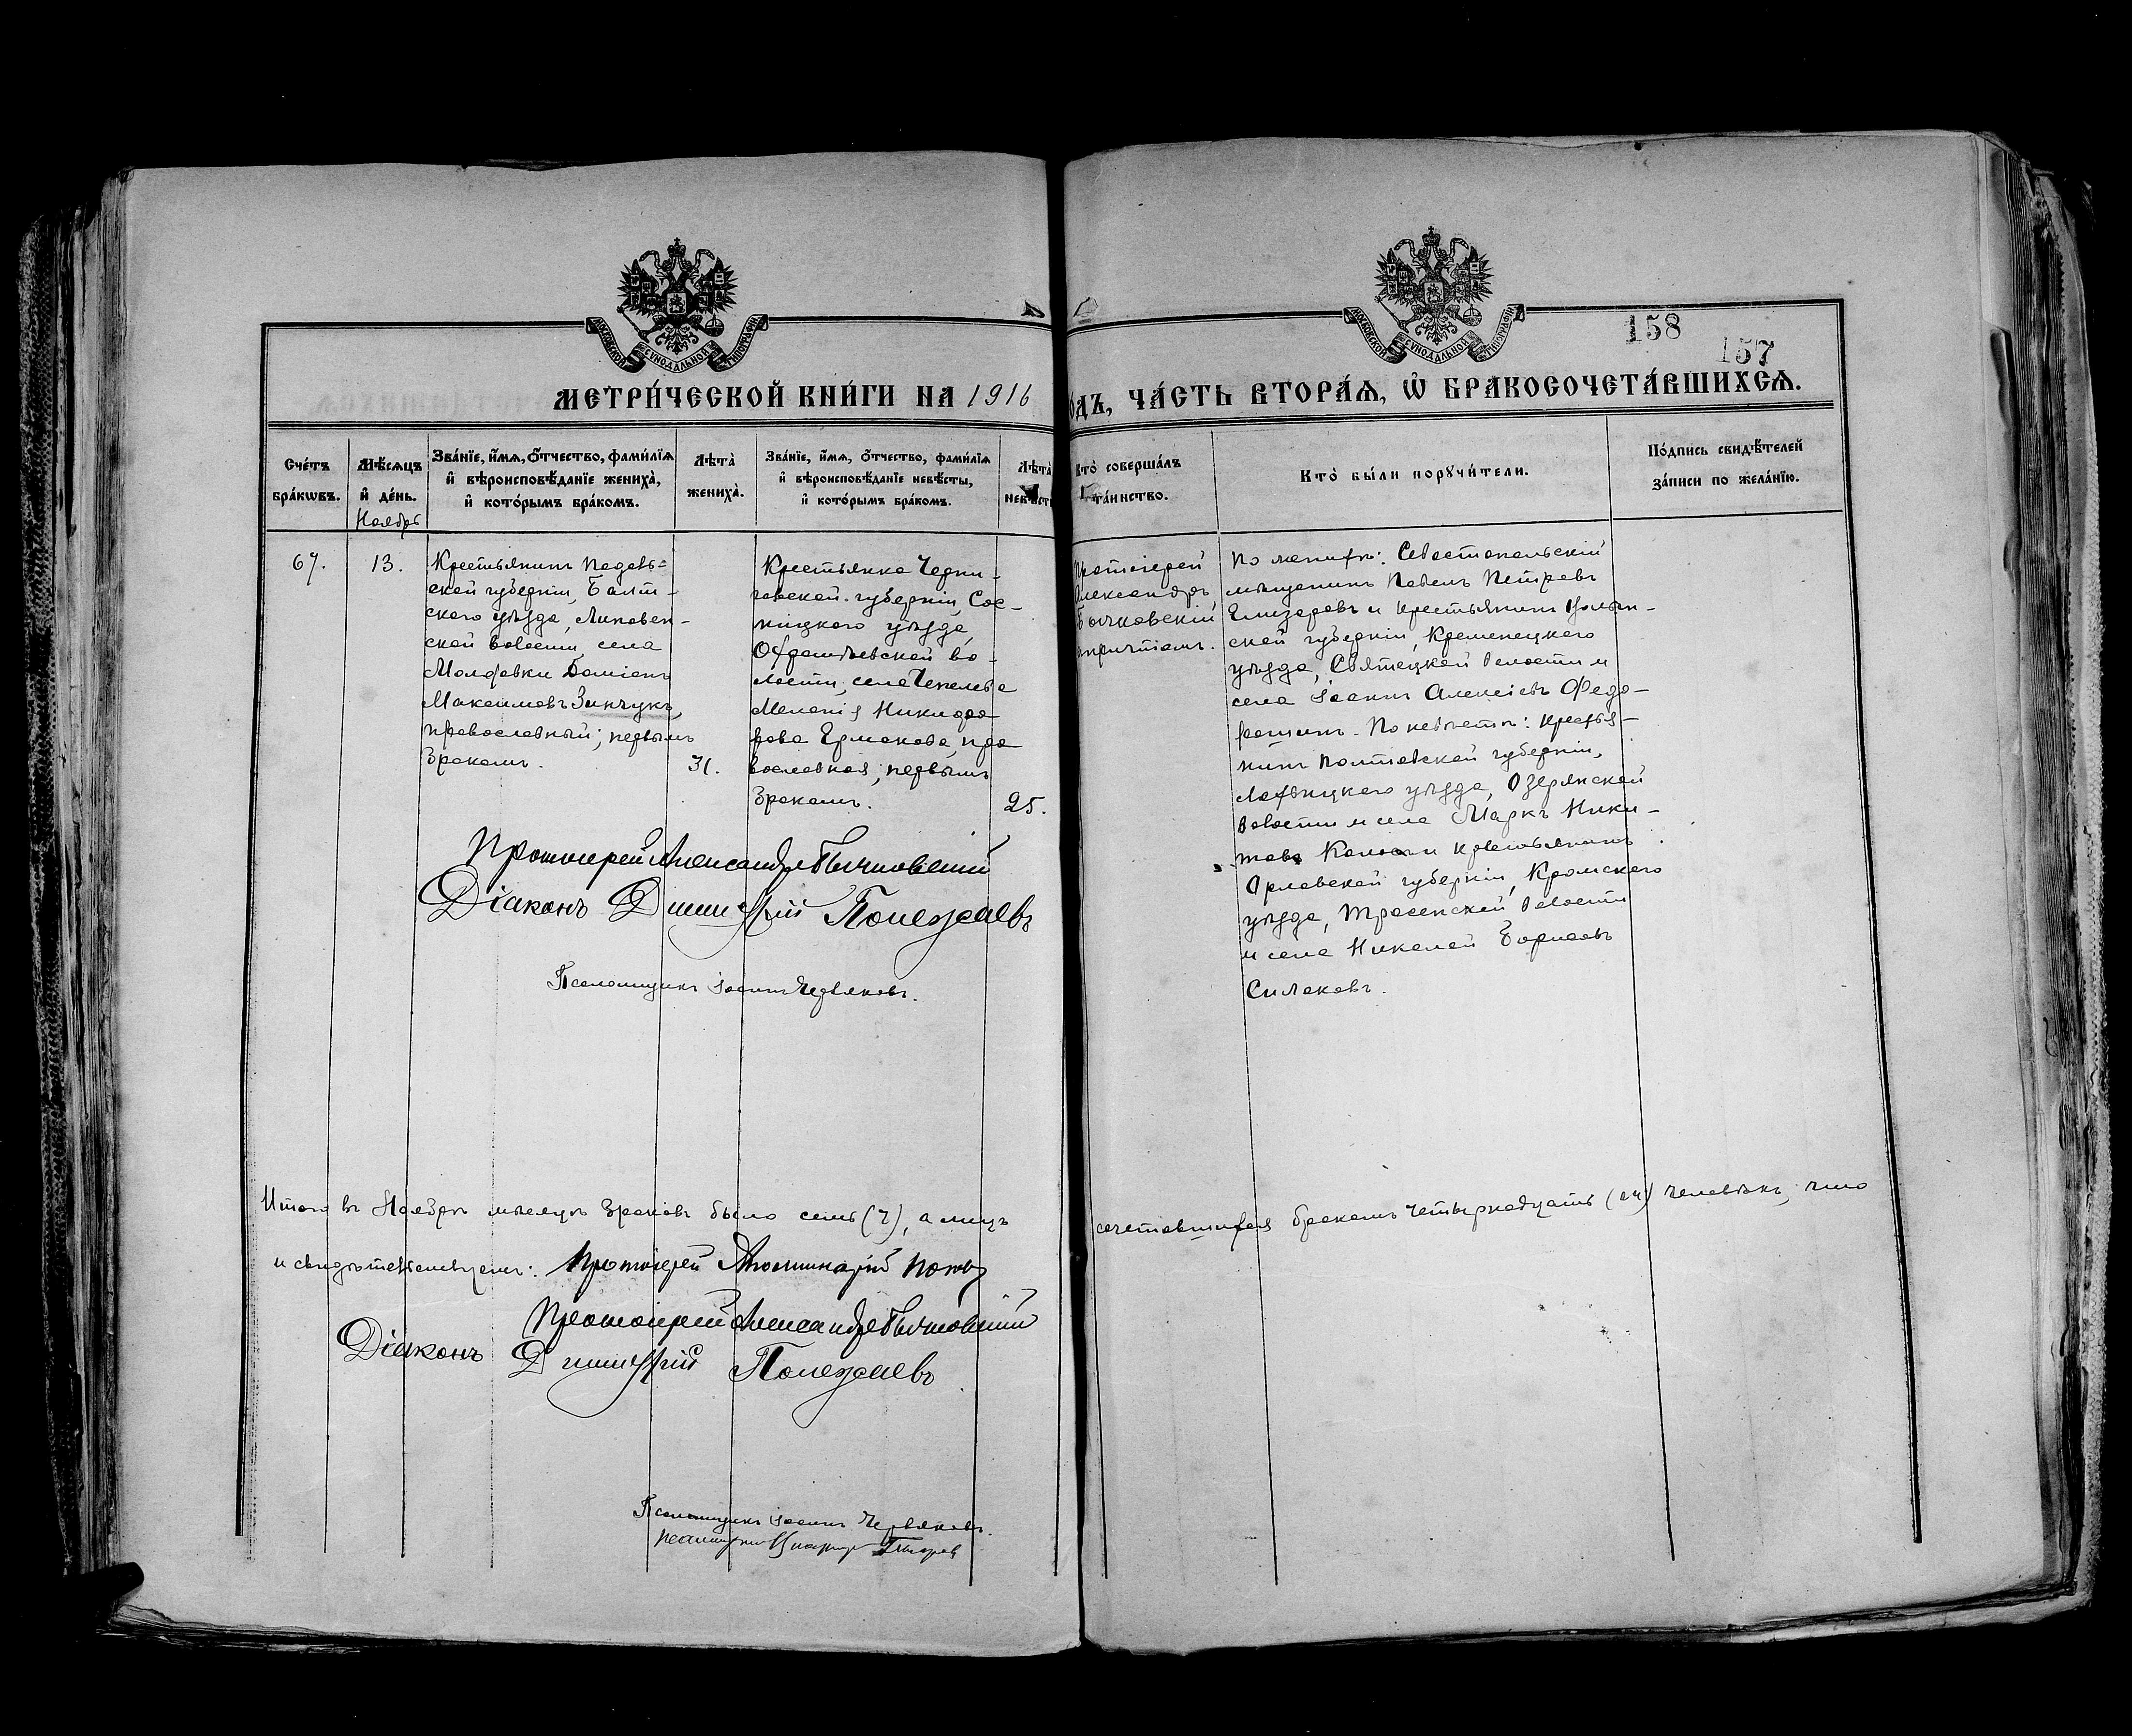 МОСКОВСКОЙ СУНОДАЛЬНОЙ ТИПОГРАФІИ
МОСКОВСКОЙ СУНОДАЛЬНОЙ ТИПОГРАФІИ
158
157
МЕТРИ́ЧЕСКОЙ КНИ́ГИ НА 1916
ОДЪ, ЧА́СТЬ ВТОРА́Ѧ, Ѡ҆ БРАКОСОЧЕТА́ВШИХСѦ.
Сче́тъ
бра́кѡвъ.
Мѣ́сяцъ
и҆ де́нь.
Ноябрь
Зва́нїе, и҆́мѧ, ѻ҆́тчество, фамилїѧ
и҆ вѣроисповѣ́данїе жениха̀,
и҆ кото́рымъ бра́комъ.
Лѣта̀
жениха̀.
Зва́нїе, и҆́мѧ, ѻ҆́тчество, фамилїѧ
и҆ вѣроисповѣ́данїе невѣ́сты,
и҆ кото́рымъ бра́комъ.
Лѣта̀
невѣ́сты
Кто̀ соверша́лъ
та́инство.
Кто̀ бы́ли порꙋчи́тели.
По́дпись свидѣ́телей
за́писи по жела́нїю.
67.
13.
Крестьянинъ Подоль=
ской губерніи, Балт-
скаго уѣзда, Липовен-
ской волости, села
Молдовки Даміанъ
Максимовъ Зинчукъ,
православный; первымъ
бракомъ.
31.
Крестьянка Черни-
говской губерніи, Сос-
ницкаго уѣзда,
волости, села
Меланія Никифо-
рова Ермакова, пра
вославная; первымъ
бракомъ.
25.
Протоіерей
Александръ
Бычковскій
съ причтомъ.
По женихѣ: Севастопольскій
мѣщанинъ Павелъ Петровъ
Елизаровъ и крестьянинъ Волын-
ской губерніи, Кременецкаго
уѣзда, Святецкой волости и
села Іоаннъ Алексіевъ Федо-
ришинъ. По невѣстѣ: крестья-
нинъ Полтавской губерніи,
Лохвицкаго уѣзда, Озерянской
волости и села Маркъ Ники-
товъ и крестьянинъ
Орловской губерніи, Кромскаго
уѣзда, волости
и села Николай Борисовъ
Силаковъ.
Протоіерей Александръ Бычковскій
Діаконъ Димитрій Полежаевъ
Псаломщикъ Іоаннъ Червяковъ.
Итого въ Ноябрѣ мѣсяцѣ браковъ было семь (7), а лицъ
сочетавшихся бракомъ четырнадцать (14) человѣкъ, что
и свидѣтельствуемъ: Протоіерей Аполлинарій Поповъ
Протоіерей Александръ Бычковскій
Діаконъ Димитрій Полежаевъ
Псаломщикъ Іоаннъ Червяковъ.
Псаломщикъ